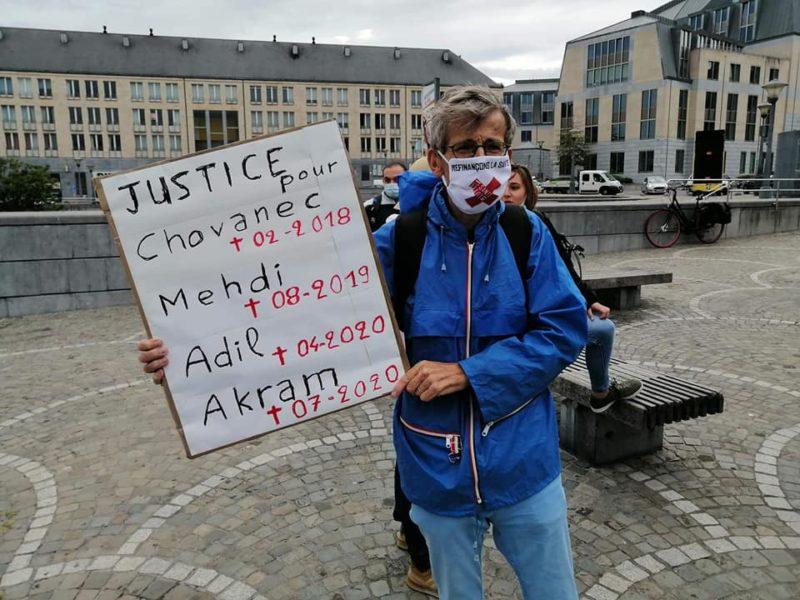 JUSTICE
pour
Chovanec
✝ 02-2018
Mehdi
✝ 08-2019
Adil ✝ 04-2020
Akram
✝ 07-2020
REFINANÇONS LA SANTÉ